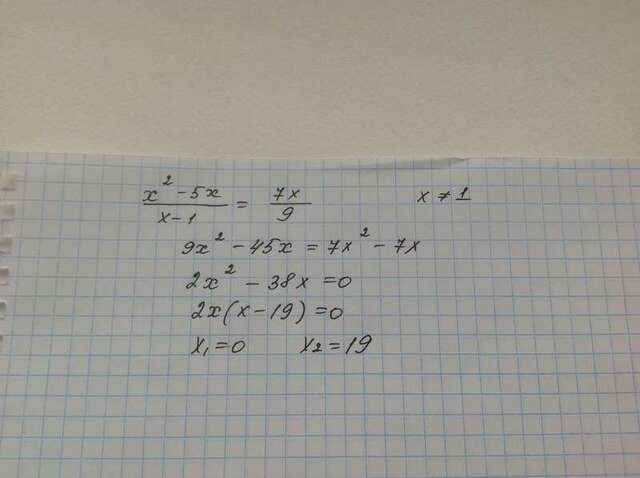 x² - 5x / x - 1 = 7x / 9    x ≠ 1
9x² - 45x = 7x² - 7x
2x² - 38x = 0
2x(x - 19) = 0
x₁ = 0    x₂ = 19